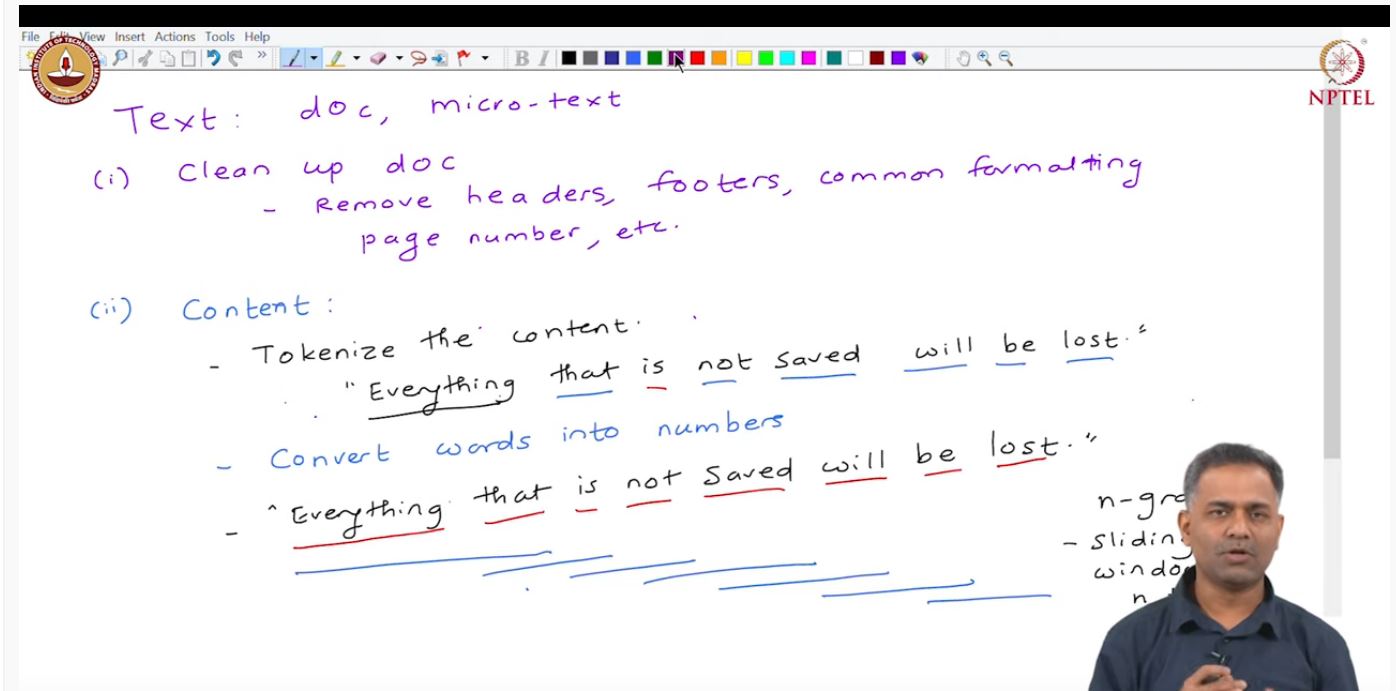 File Edit View Insert Actions Tools Help
B I
NPTEL
Text: doc, micro-text
(i) Clean up doc
- Remove headers, footers, common formatting
page number, etc.
(ii) Content:
- Tokenize the content.
"Everything that is not saved will be lost."
- Convert words into numbers
- "Everything that is not saved will be lost."
n-gr
- slidin
windo
n